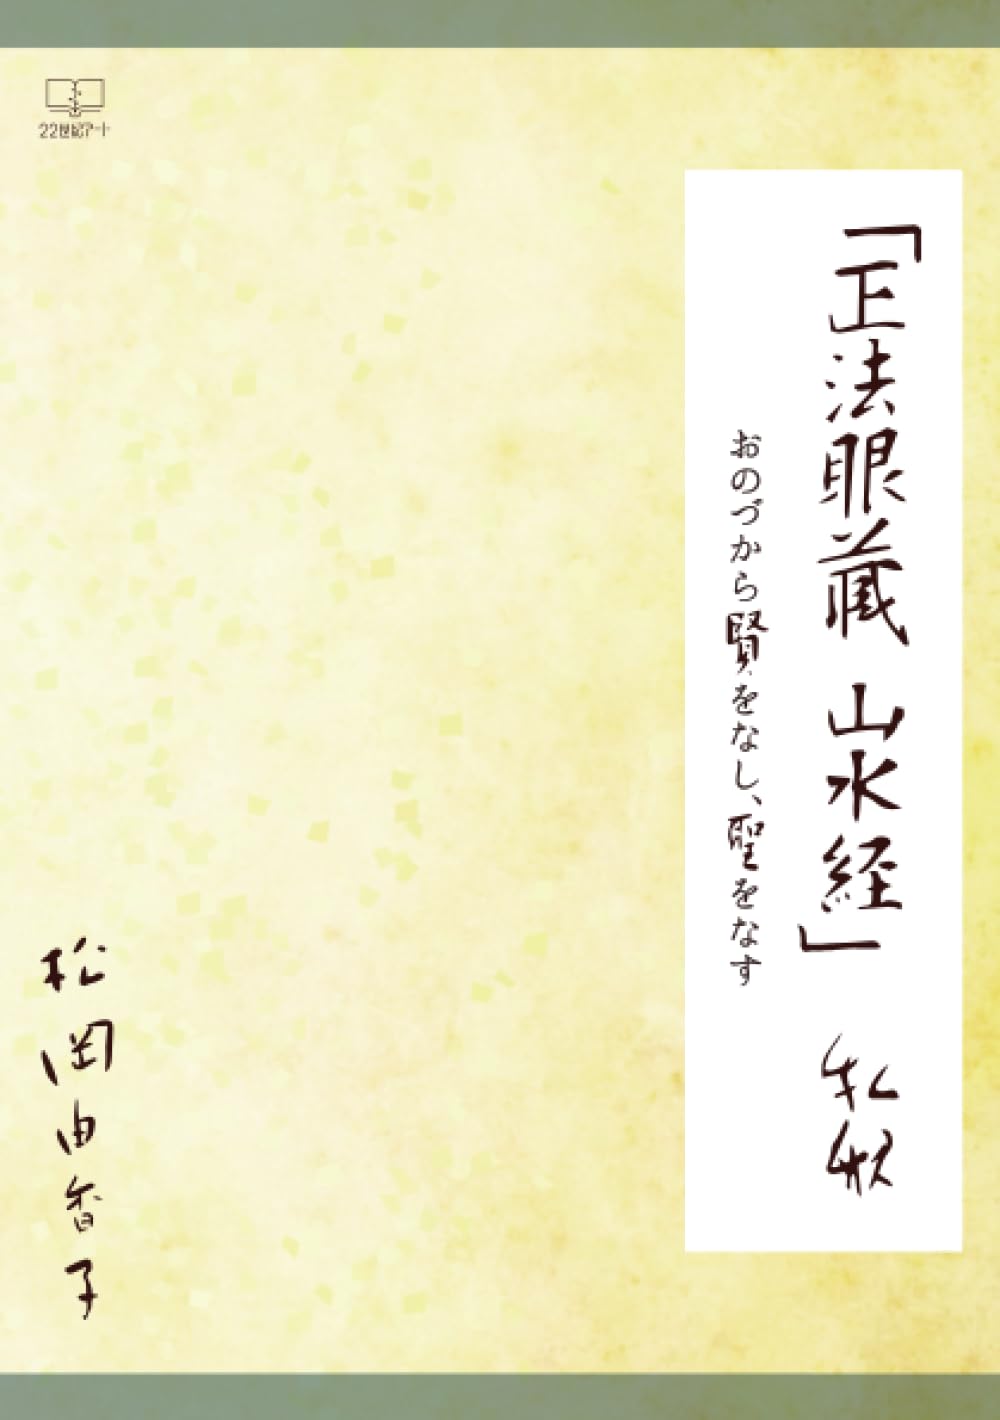 22世紀アート
「正法眼蔵 山水経」 私釈
おのづから賢をなし、聖をなす
松岡由香子